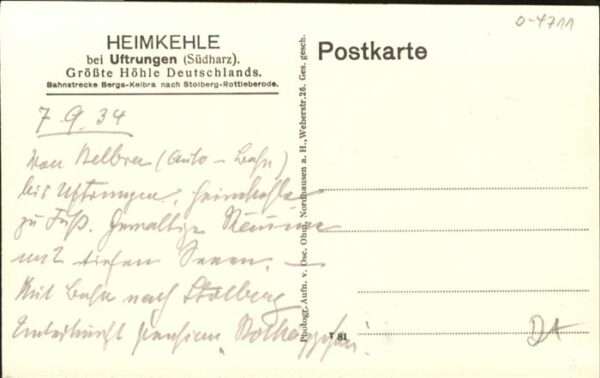 O-4711
HEIMKEHLE
bei Uftrungen (Südharz).
Größte Höhle Deutschlands.
Bahnstrecke Berga-Kelbra nach Stolberg-Rottleberode.
Postkarte
7.9.34
Von Kelbra (Auto - Bahn)
bis Uftrungen. Heimkehle
zu Fuß. Gewaltige Räume
mit tiefen Seeen. —
Mit Bahn nach Stolberg
Unterkunft Pension
Photogr. Aufn. v. Osc. Ohm, Nordhausen a. H., Weberstr. 26. Ges. gesch.
T 81